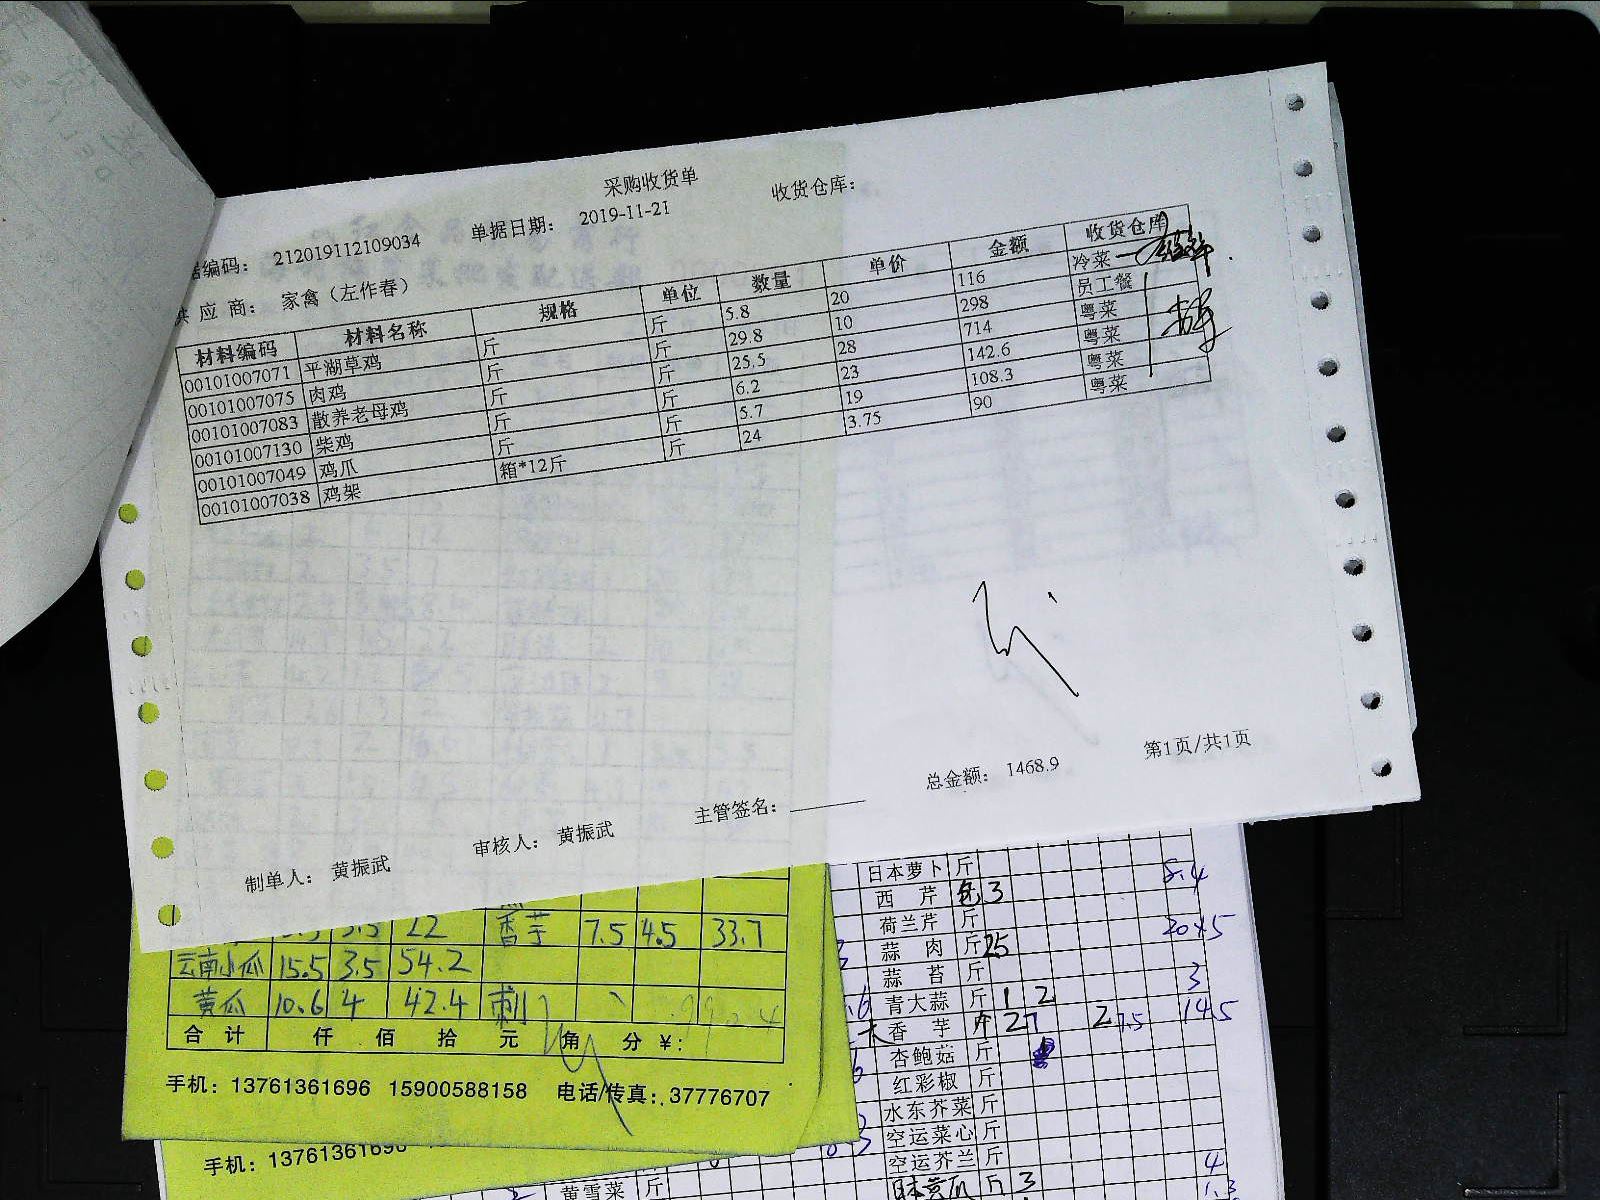 采购收货单
编码： 212019112109034 单据日期： 2019-11-21 收货仓库：
应 商： 家禽（左作春）
材料编码 材料名称 规格 单位 数量 单价 金额 收货仓库
00101007071 平湖草鸡 斤 斤 5.8 20 116 冷菜
00101007075 肉鸡 斤 斤 29.8 10 298 员工餐
00101007083 散养老母鸡 斤 斤 25.5 28 714 粤菜
00101007130 柴鸡 斤 斤 6.2 23 142.6 粤菜
00101007049 鸡爪 斤 斤 5.7 19 108.3 粤菜
00101007038 鸡架 箱*12斤 斤 24 3.75 90 粤菜
制单人： 黄振武 审核人： 黄振武 主管签名： 总金额： 1468.9 第1页/共1页
3.5 22 香芋 7.5 4.5 33.7
云南小瓜 15.5 3.5 54.2
黄瓜 10.6 4 42.4 刺
合 计 仟 佰 拾 元 角 分 ¥：
手机：13761361696 15900588158 电话/传真：37776707
手机：13761361696
日本萝卜 斤 8.4
西 芹 3
荷兰芹 斤
蒜 肉 斤 25
蒜 苔 斤 3
青大蒜 斤 1 2
香 芋 斤 27 27.5 14.5
杏鲍菇 斤
红彩椒 斤
水东芥菜 斤
空运菜心 斤
空运芥兰 斤 4
日本黄瓜 斤 3
黄雪菜 斤